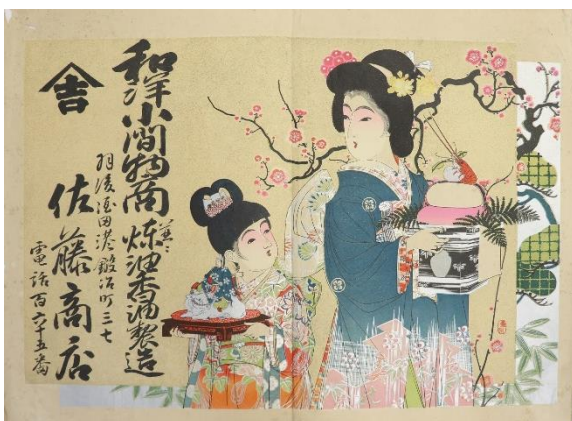 和洋小間物商 煉油香油製造
羽後酒田港鍛冶町三七
吉
佐藤商店
電話百六十五番